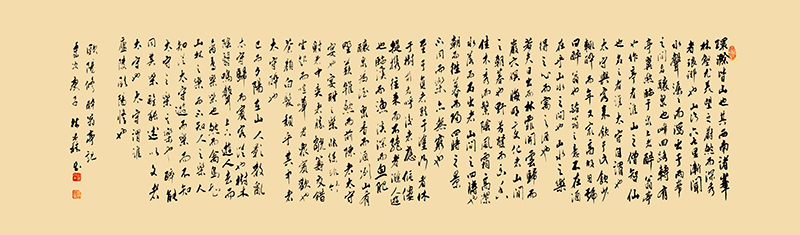 環滁皆山也其西南諸峰
林壑尤美望之蔚然而深秀
者琅琊也山行六七里漸聞
水聲潺潺而瀉出于兩峰
之間者釀泉也峰回路轉有
亭翼然臨于泉上者醉翁亭
也作亭者誰山之僧智仙
也名之者誰太守自謂也
太守與客來飲于此飲少
輒醉而年又最高故自號
曰醉翁也醉翁之意不在酒
在乎山水之間也山水之樂
得之心而寓之酒也
若夫日出而林霏開雲歸而
岩穴暝晦明變化者山間
之朝暮也野芳發而幽香
佳木秀而繁陰風霜高潔
水落而石出者山間之四時也
朝而往暮而歸四時之景
不同而樂亦無窮也
至于負者歌于途行者休
于樹前者呼後者應傴僂
提攜往來而不絕者滁人遊
也臨溪而漁溪深而魚肥
釀泉為酒泉香而酒洌山肴
野蔌雜然而前陳者太守
宴也宴酣之樂非絲非竹
射者中弈者勝觥籌交錯
坐起而喧嘩者衆賓歡也
蒼顔白髮頹乎其中者
太守醉也
已而夕陽在山人影散亂
太守歸而賓客從也樹林
陰翳鳴聲上下遊人去而
禽鳥樂也然而禽鳥知
山林之樂而不知人之樂人
知從太守遊而樂而不知
太守之樂其樂也醉能
同其樂醒能述以文者
太守也太守謂誰
廬陵歐陽修也
歐陽修醉翁亭記
歲次庚子 書